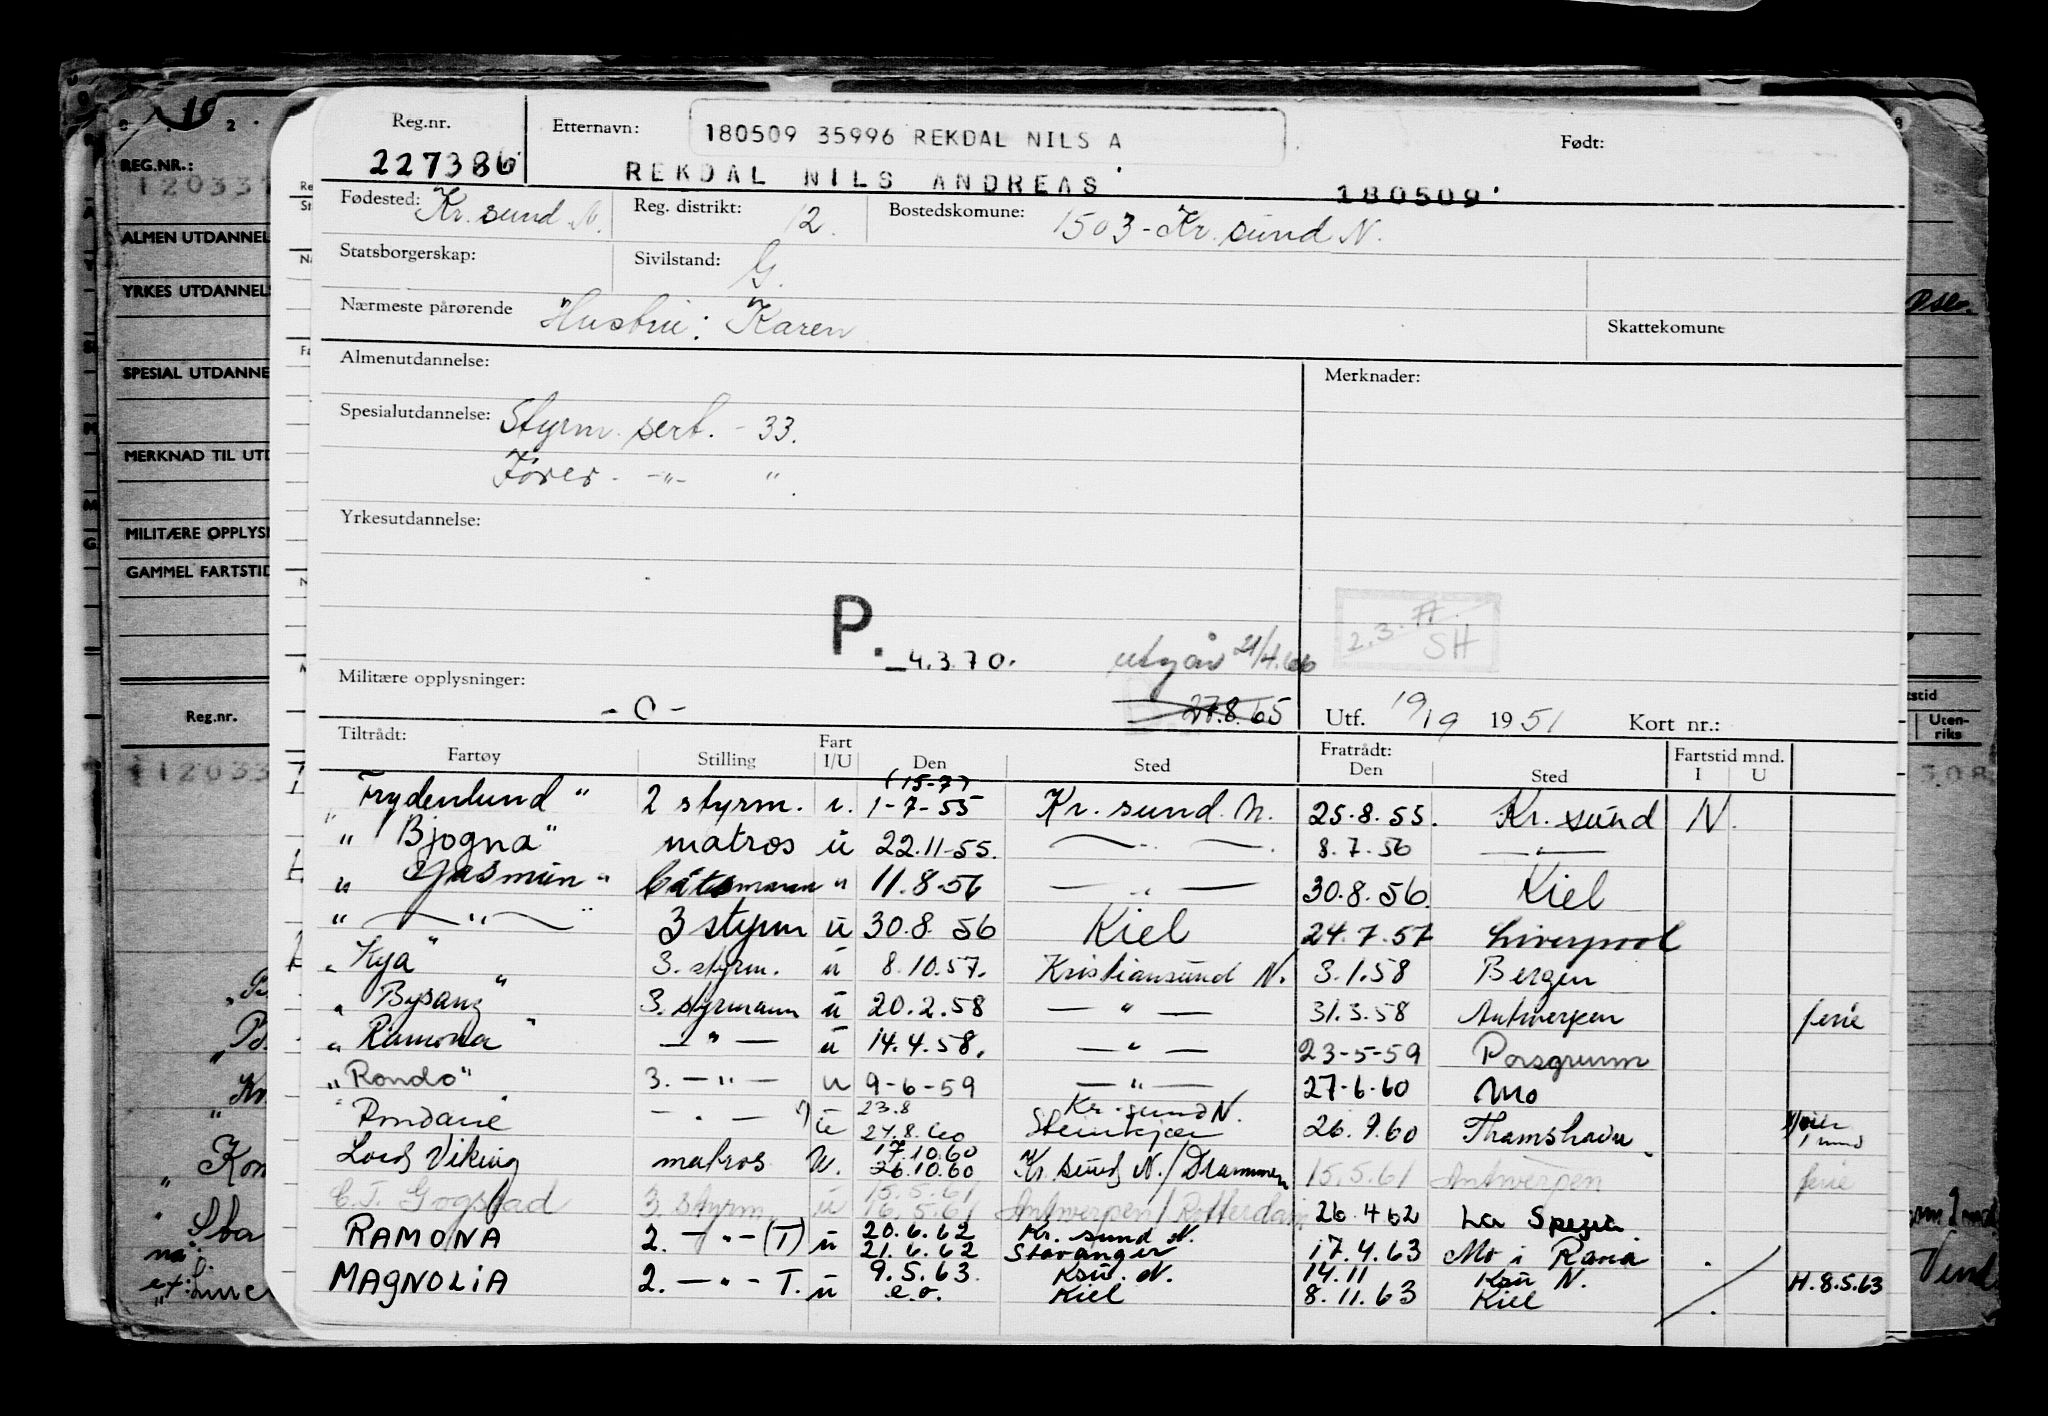 Reg.nr. Etternavn: 180509 35996 REKDAL NILS A Født:
227386 REKDAL NILS ANDREAS 180509
Fødested: Kr.sund N. Reg. distrikt: 12. Bostedskomune: 1503-Kr.sund N.
Statsborgerskap: Sivilstand: G.
Nærmeste pårørende Hustru: Karen Skattekomune
Almenutdannelse: Merknader:
Spesialutdannelse: Styrm. sert. - 33.
Fører - -"- ".
Yrkesutdannelse:
P. 2.3.77 SH
4.3.70. utgår 21/4.66
Militære opplysninger: - O - 27.8.65 Utf. 19/9 1951 Kort nr.:
Tiltrådt: Fratrådt: Fartstid mnd.
Fartøy Stilling Fart I/U Den Sted Den Sted I U
(15-7)
"Frydenlund" 2 styrm. i. 1-7-55 Kr.sund.N. 25.8.55. Kr.sund N.
" Bjogna" matros u 22.11-55. — " — 8.7.56 — " —
" Jasmin" båtsmann " 11.8-56 — " — 30.8.56. Kiel
" — " — " 3 styrm u 30.8.56 Kiel 24.7.57 Liverpool
"Kya" 3. styrm. u 8.10.57. Kristiansund N. 3.1.58 Bergen
" Bysanz" 3. styrmann u 20.2.58 — " — 31.3.58 Antwerpen ferie
" Ramona" — " — u 14.4.58. — " — 23-5-59 Porsgrunn
"Rondo" 3. — " — u 9-6-59 — " — 27-6.60 Mo
" Rondane — " — u 23.8 24.8.60 Kr.sund N. Steinkjer 26.9.60 Thamshavn
Lord Viking matros u. 17.10.60 26.10.60 Kr.sund N./Drammen 15.5.61 Antwerpen ferie
C.T. Gogstad 3 styrm. u 15.5.61 16.5.61 Antwerpen/Rotterdam 26.4.62 La Spezia
RAMONA 2. — " — (T) u 20.6.62 21.6.62 Kr.sund N. Stavanger 17.4.63 Mo i Rana
MAGNOLIA 2. — " — T. u 9.5.63. e.o. Ksu. N. Kiel 14.11 8.11.63 Ksu N. Kiel H.8.5.63
REG.NR.:
ALMEN UTDANNEL
YRKES UTDANNELS
SPESIAL UTDANNE
MERKNAD TIL UTD
MILITÆRE OPPLYS
GAMMEL FARTSTID
Reg.nr.
tstid
Uten-
riks